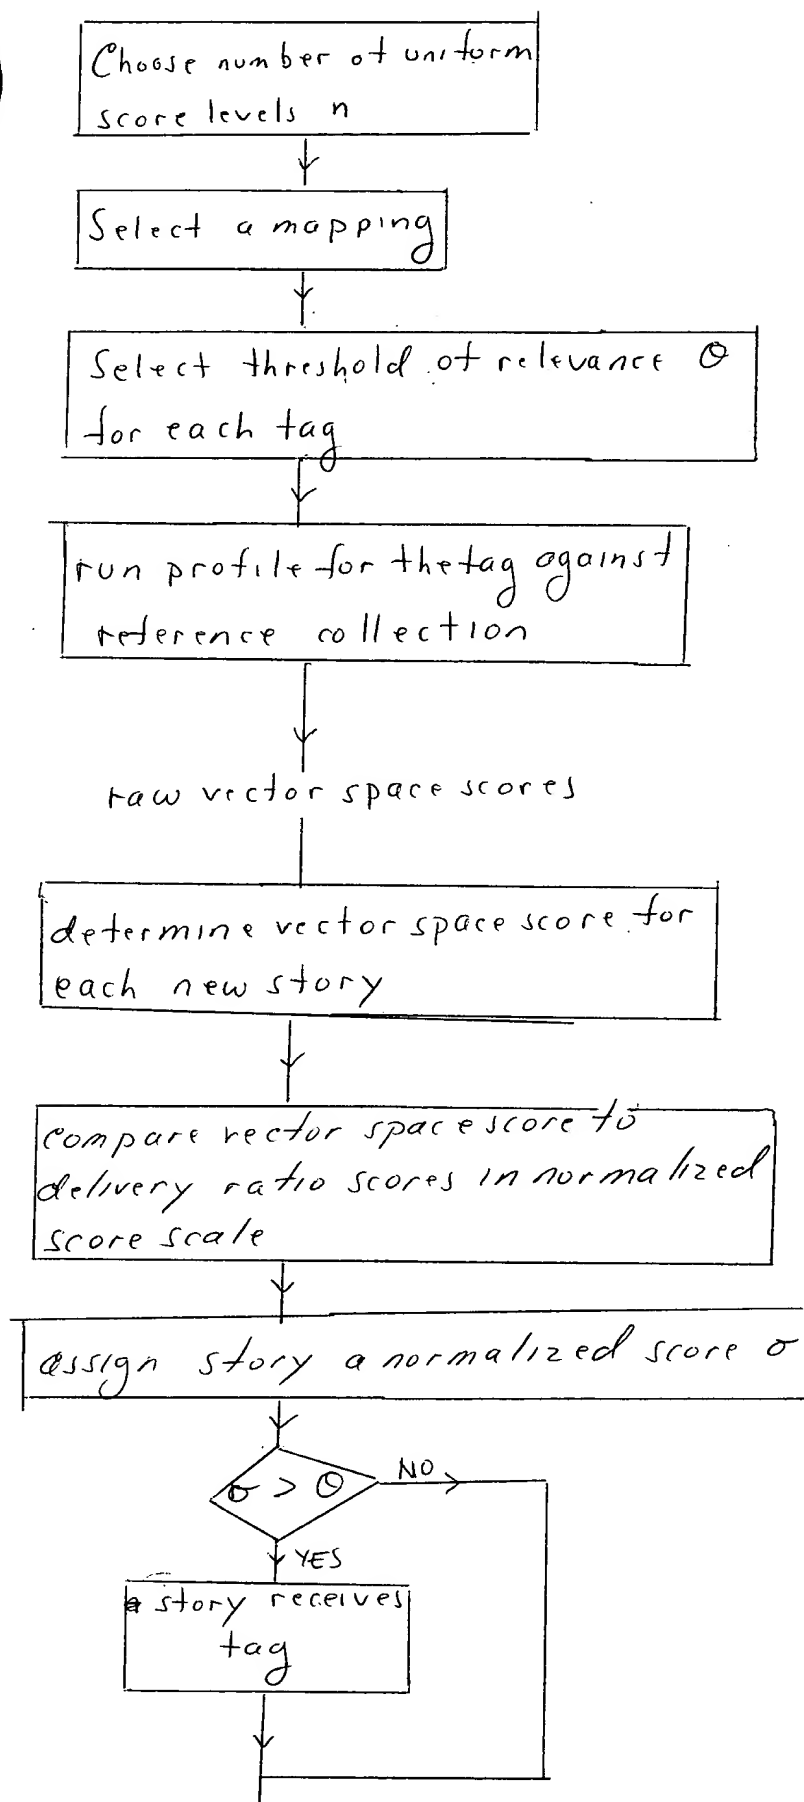 Choose number of uniform
score levels n
Select a mapping
Select threshold of relevance Θ
for each tag
run profile for the tag against
reference collection
raw vector space scores
determine vector space score for
each new story
compare vector space score to
delivery ratio scores in normalized
score scale
assign story a normalized score σ
σ > Θ
NO
YES
story receives
tag